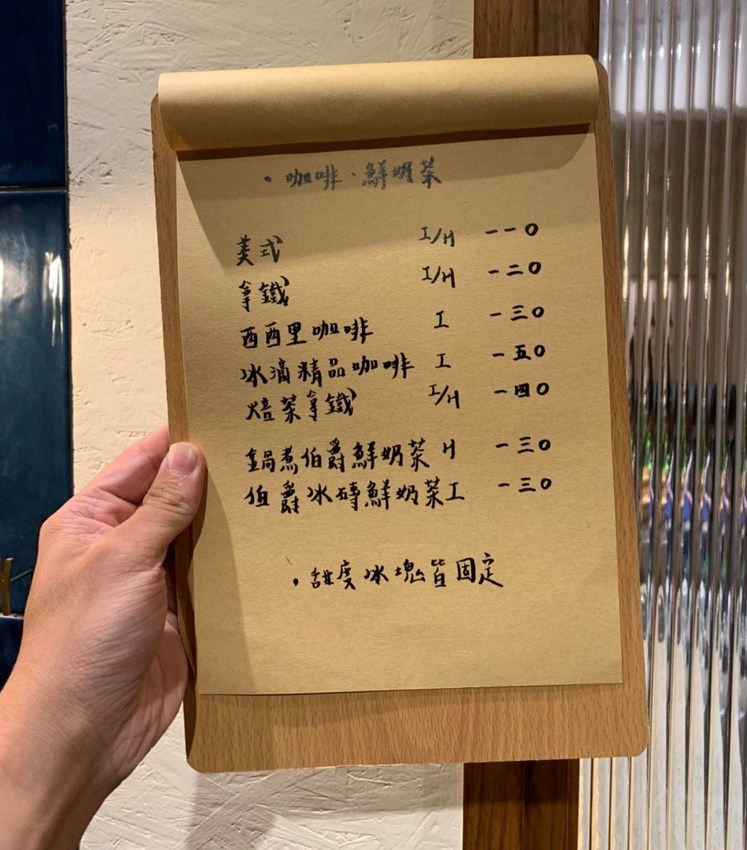 ・咖啡・鮮奶茶
美式 I/H 一一0
拿鐵 I/H 一二0
西西里咖啡 I 一三0
冰滴精品咖啡 I 一五0
焙茶拿鐵 I/H 一四0
鍋煮伯爵鮮奶茶 H 一三0
伯爵冰磚鮮奶茶 I 一三0
・甜度冰塊皆固定